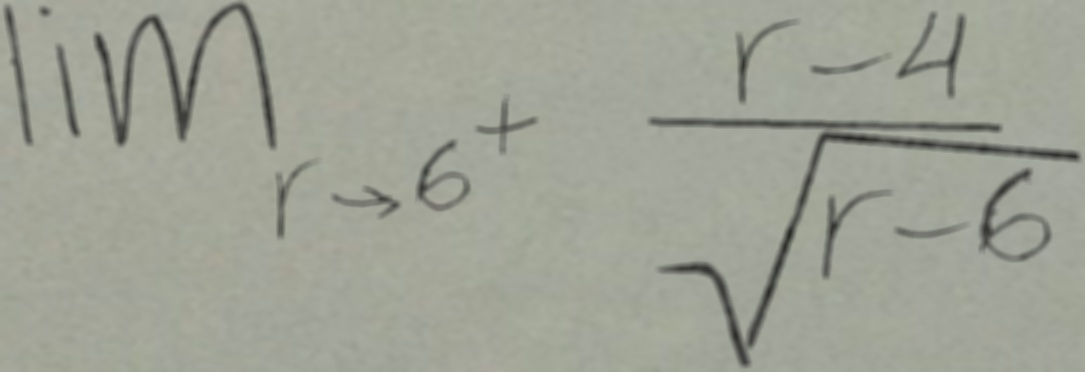 \lim_{r \to 6^+} \frac{r-4}{\sqrt{r-6}}